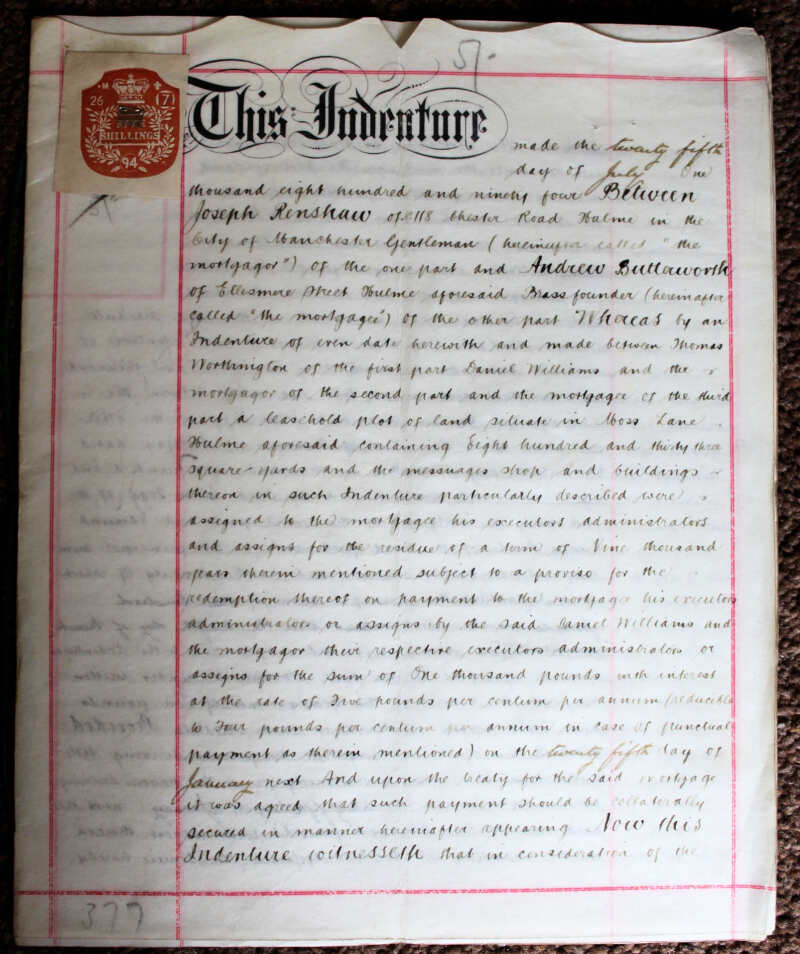 5/-
26 (7)
FIVE
SHILLINGS
94
This Indenture
made the twenty fifth
day of July One
thousand eight hundred and ninety four Between
Joseph Renshaw of 118 Chester Road Hulme in the
City of Manchester Gentleman (hereinafter called "the
mortgagor") of the one part and Andrew Butterworth
of Ellesmere Street Hulme aforesaid Brassfounder (hereinafter
called "the mortgagee") of the other part Whereas by an
Indenture of even date herewith and made between Thomas
Worthington of the first part Daniel Williams and the
mortgagor of the second part and the mortgagee of the third
part a leasehold plot of land situate in Moss Lane
Hulme aforesaid containing Eight hundred and thirty three
square yards and the messuages shop and buildings
thereon in such Indenture particularly described were
assigned to the mortgagee his executors administrators
and assigns for the residue of a term of Nine thousand
years therein mentioned subject to a proviso for the
redemption thereof on payment to the mortgagee his executors
administrators or assigns by the said Daniel Williams and
the mortgagor their respective executors administrators or
assigns for the sum of One thousand pounds with interest
at the rate of Five pounds per centum per annum (reducible
to Four pounds per centum per annum in case of punctual
payment as therein mentioned) on the twenty fifth day of
January next And upon the treaty for the said mortgage
it was agreed that such payment should be collaterally
secured in manner hereinafter appearing Now this
Indenture witnesseth that in consideration of the
377